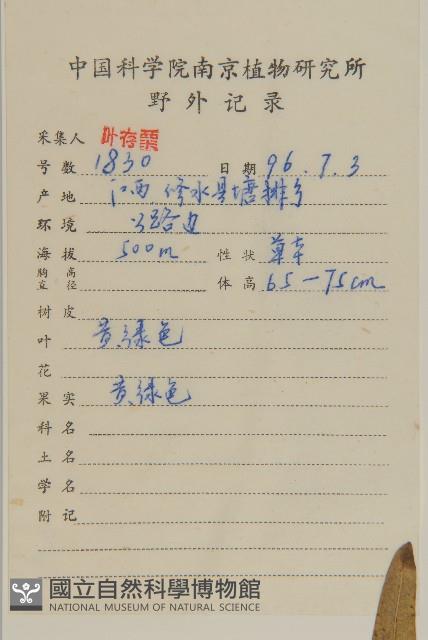 中国科学院南京植物研究所
野外记录
采集人 叶存粟
号数 1830 日期 96.7.3
产地 江西修水县塘排乡
环境 公路边
海拔 500m 性状 草本
胸高直径 体高 65—75cm
树皮
叶 黄绿色
花
果实 黄绿色
科名
土名
学名
附记
國立自然科學博物館
NATIONAL MUSEUM OF NATURAL SCIENCE